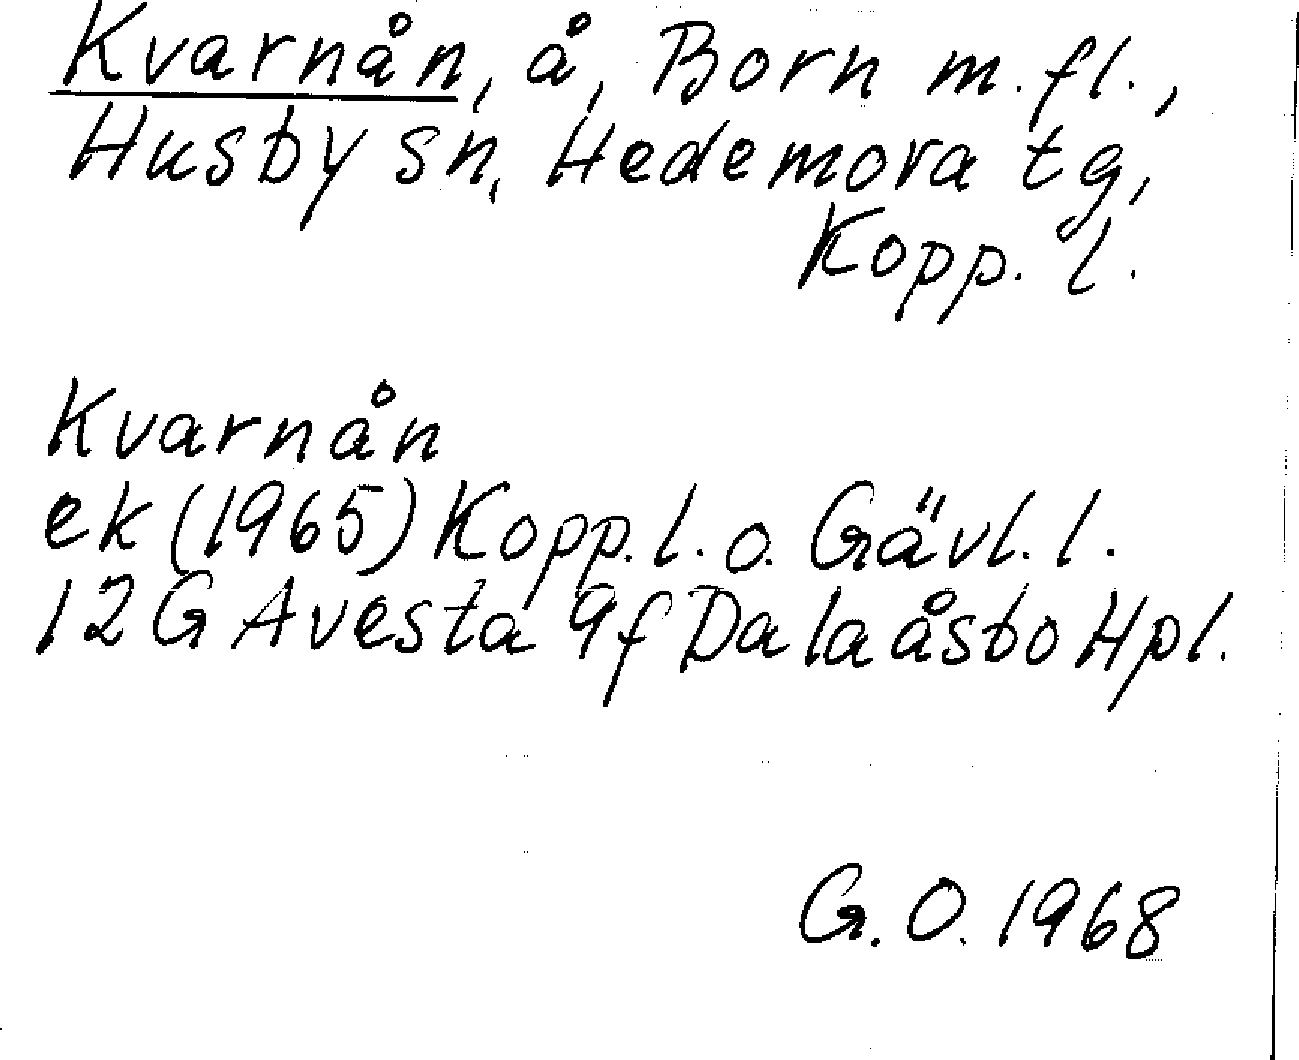 Kvarnån, å, Born m.fl.,
Husby sn, Hedemora tg,
Kopp. l.
Kvarnån
ek (1965) Kopp. l. o. Gävl. l.
12 G Avesta 9f Dalaåsbo Hpl.
G. O. 1968